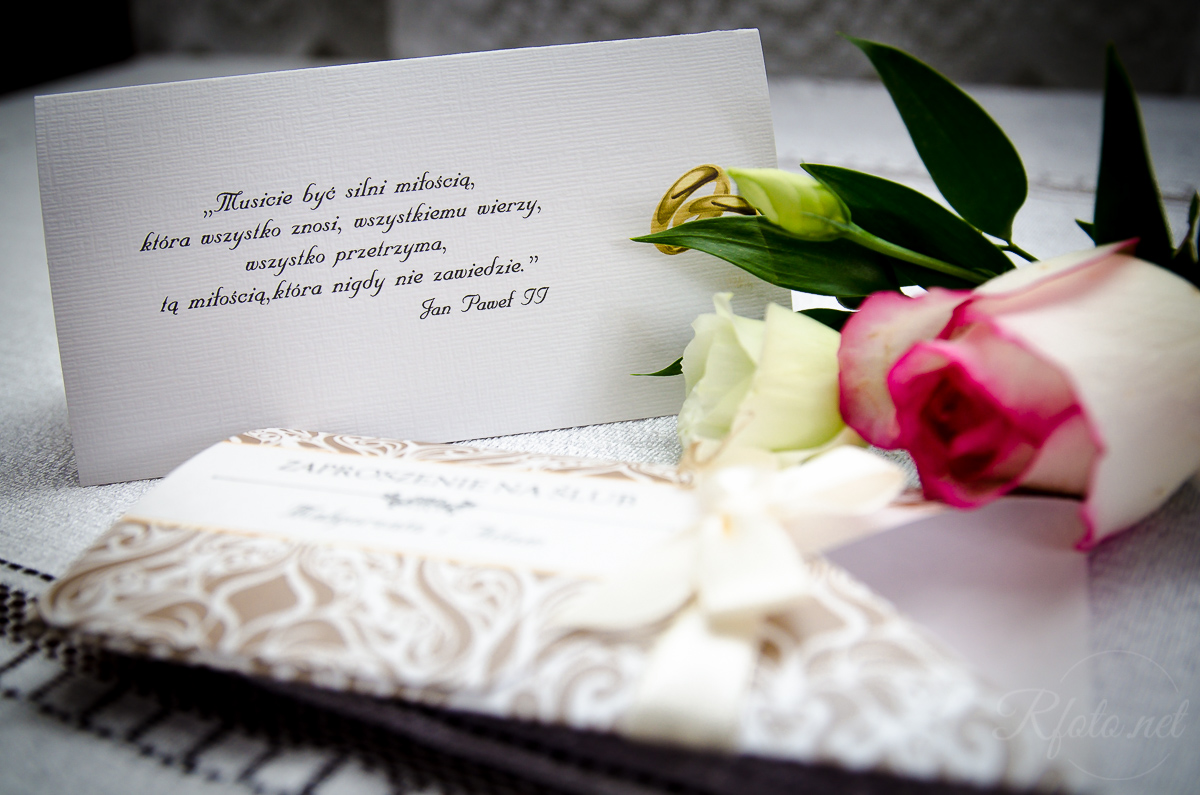 „Musicie być silni miłością,
która wszystko znosi, wszystkiemu wierzy,
wszystko przetrzyma,
tą miłością,która nigdy nie zawiedzie.”
Jan Paweł II
ZAPROSZENIE NA ŚLUB
Rfoto.net